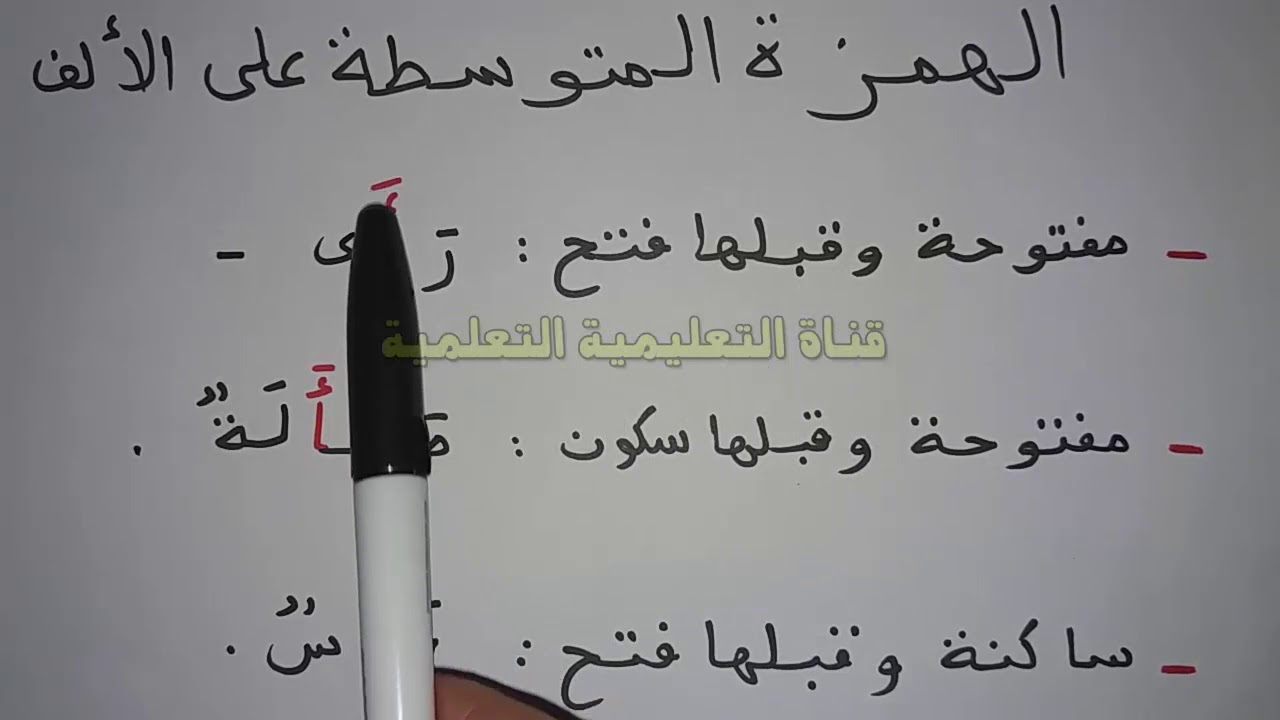 الهمزة المتوسطة على الألف
- مفتوحة وقبلها فتح : -
قناة التعليمية التعلمية
- مفتوحة وقبلها سكون : .
- ساكنة وقبلها فتح : .